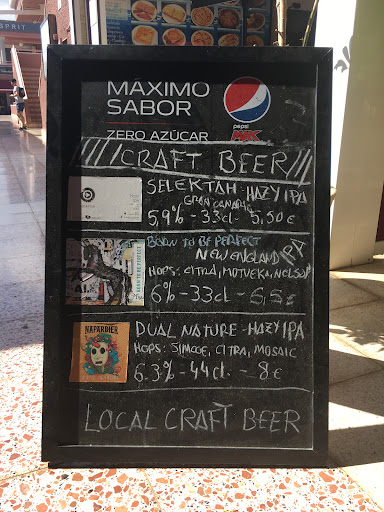 SPRIT
MÁXIMO
SABOR
ZERO AZÚCAR
pepsi
MAX
CRAFT BEER
SELEKTAH - HAZY IPA
GRAN CANARIA
5,9% - 33cl - 5,50€
BORN TO BE PERFECT
NEW ENGLAND IPA
HOPS: CITRA, MOTUEKA, NELSON
6% - 33cl - 6,5€
NAPARBIER
DUAL NATURE - HAZY IPA
HOPS: SIMCOE, CITRA, MOSAIC
6.3% - 44cl - 8€
LOCAL CRAFT BEER